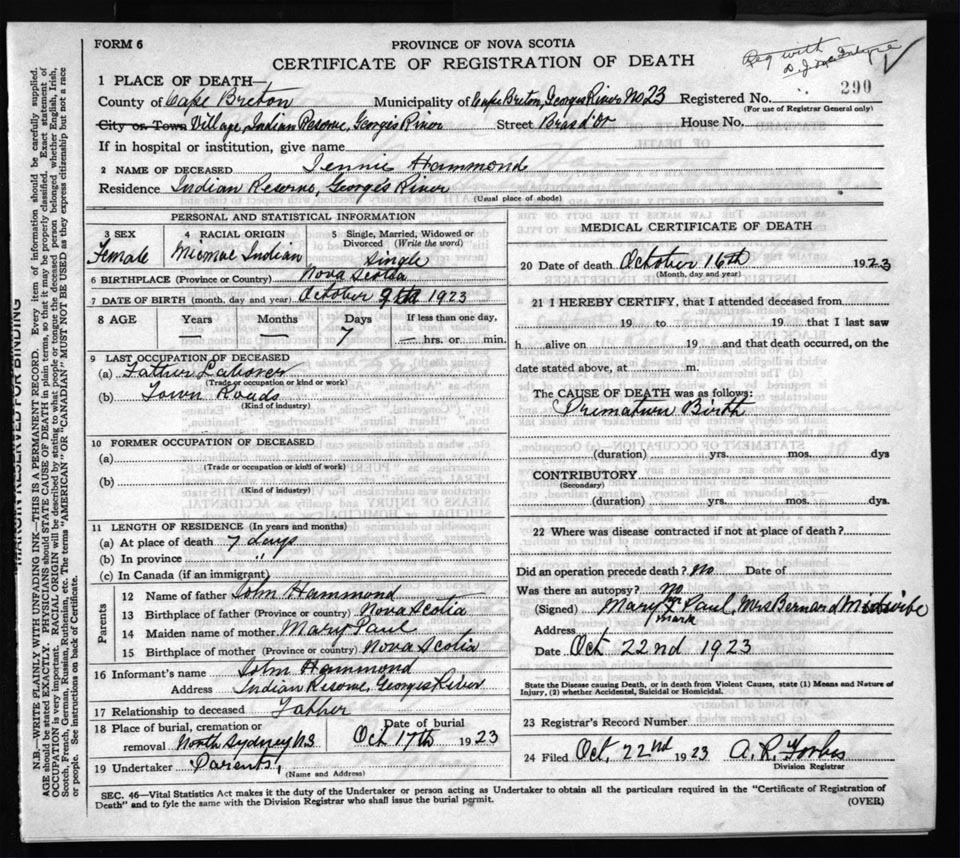 FORM 6
PROVINCE OF NOVA SCOTIA
CERTIFICATE OF REGISTRATION OF DEATH
Reg with
D. J. McIntyre
1 PLACE OF DEATH—
County of Cape Breton Municipality of Cape Breton, Georges River No 23 Registered No. 290
(For use of Registrar General only)
City or Town Village, Indian Reserve, Georges River Street Bras d'Or House No.
If in hospital or institution, give name
2 NAME OF DECEASED Jennie Hammond
Residence Indian Reserve, George's River
(Usual place of abode)
PERSONAL AND STATISTICAL INFORMATION
3 SEX 4 RACIAL ORIGIN 5 Single, Married, Widowed or Divorced (Write the word)
Female Micmac Indian Single
6 BIRTHPLACE (Province or Country) Nova Scotia
7 DATE OF BIRTH (month, day and year) October 9th 1923
8 AGE Years Months Days If less than one day,
— — 7 — hrs. or min.
9 LAST OCCUPATION OF DECEASED
(a) Father Laborer
(Trade or occupation or kind or work)
(b) Town Roads
(Kind of industry)
10 FORMER OCCUPATION OF DECEASED
(a)
(Trade or occupation or kind of work)
(b)
(Kind of industry)
11 LENGTH OF RESIDENCE (In years and months)
(a) At place of death 7 Days
(b) In province "
(c) In Canada (if an immigrant)
Parents
12 Name of father John Hammond
13 Birthplace of father (Province or country) Nova Scotia
14 Maiden name of mother Mary Paul
15 Birthplace of mother (Province or country) Nova Scotia
16 Informant's name John Hammond
Address Indian Reserve, Georges River
17 Relationship to deceased Father
18 Place of burial, cremation or removal North Sydney N.S Date of burial Oct 17th 1923
19 Undertaker Parents
(Name and Address)
MEDICAL CERTIFICATE OF DEATH
20 Date of death October 16th 1923
(Month, day and year)
21 I HEREBY CERTIFY, that I attended deceased from
19 to 19 that I last saw
h alive on 19 and that death occurred, on the
date stated above, at m.
The CAUSE OF DEATH was as follows:
Primature Birth
(duration) yrs. mos. dys
CONTRIBUTORY
(Secondary)
(duration) yrs. mos. dys.
22 Where was disease contracted if not at place of death?
Did an operation precede death? No Date of
Was there an autopsy? No
(Signed) Mary X Paul, Mrs Bernard Midwife
mark
Address
Date Oct 22nd 1923
State the Disease causing Death, or in death from Violent Causes, state (1) Means and Nature of
Injury, (2) whether Accidental, Suicidal or Homicidal.
23 Registrar's Record Number
24 Filed Oct, 22nd 1923 A. R. Forbes
Division Registrar
SEC. 46—Vital Statistics Act makes it the duty of the Undertaker or person acting as Undertaker to obtain all the particulars required in the "Certificate of Registration of
Death" and to fyle the same with the Division Registrar who shall issue the burial permit.
(OVER)
MARGIN RESERVED FOR BINDING
N.B.—WRITE PLAINLY WITH UNFADING INK—THIS IS A PERMANENT RECORD. Every item of information should be carefully supplied.
AGE should be stated EXACTLY. PHYSICIANS should STATE CAUSE OF DEATH in plain terms, so that it may be properly classified. Exact statement of
OCCUPATION is very important. RACIAL ORIGIN will be described by stating to what people or tongue the deceased person belonged whether English, Irish,
Scotch, French, German, Russian, Ruthenian, etc. The terms "AMERICAN" OR "CANADIAN" MUST NOT BE USED as they express citizenship but not a race
or people. See instructions on back of Certificate.